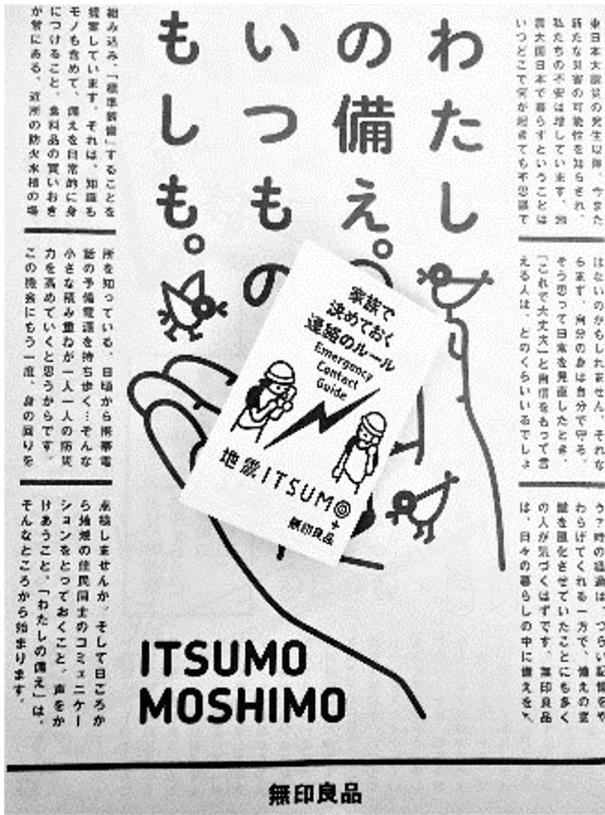 東日本大震災の発生以降、今また
新たな災害の可能性を知らされ、
私たちの不安は増しています。地
震大国日本で暮らすということは
いつどこで何が起きても不思議で
はないのかもしれません。それな
らまず、自分の身は自分で守る。
そう思って日常を見直したとき、
「これで大丈夫」と自信をもって言
える人は、どのくらいいるでしょ
う？時の経過は、つらい記憶をや
わらげてくれる一方で、備えの意
識を風化させていたことにも多く
の人が気づくはずです。無印良品
は、日々の暮らしの中に備えを
わたし
の備え。
いつもの
もしも。
組み込み、「標準装備」することを
提案しています。それは、知識も
モノも含めて、備えを日常的に身
につけること。食料品の買いおき
が常にある。近所の防火水槽の場
所を知っている。日頃から携帯電
話の予備電源を持ち歩く…そんな
小さな積み重ねが一人一人の防災
力を高めていくと思うからです。
この機会にもう一度、身の回りを
点検しませんか。そして日ごろか
ら地域の住民同士のコミュニケー
ションをとっておくこと、声をか
けあうこと。「わたしの備え」は、
そんなところから始まります。
家族で
決めておく
連絡のルール
Emergency
Contact
Guide
地震ITSUMO
+
無印良品
ITSUMO
MOSHIMO
無印良品